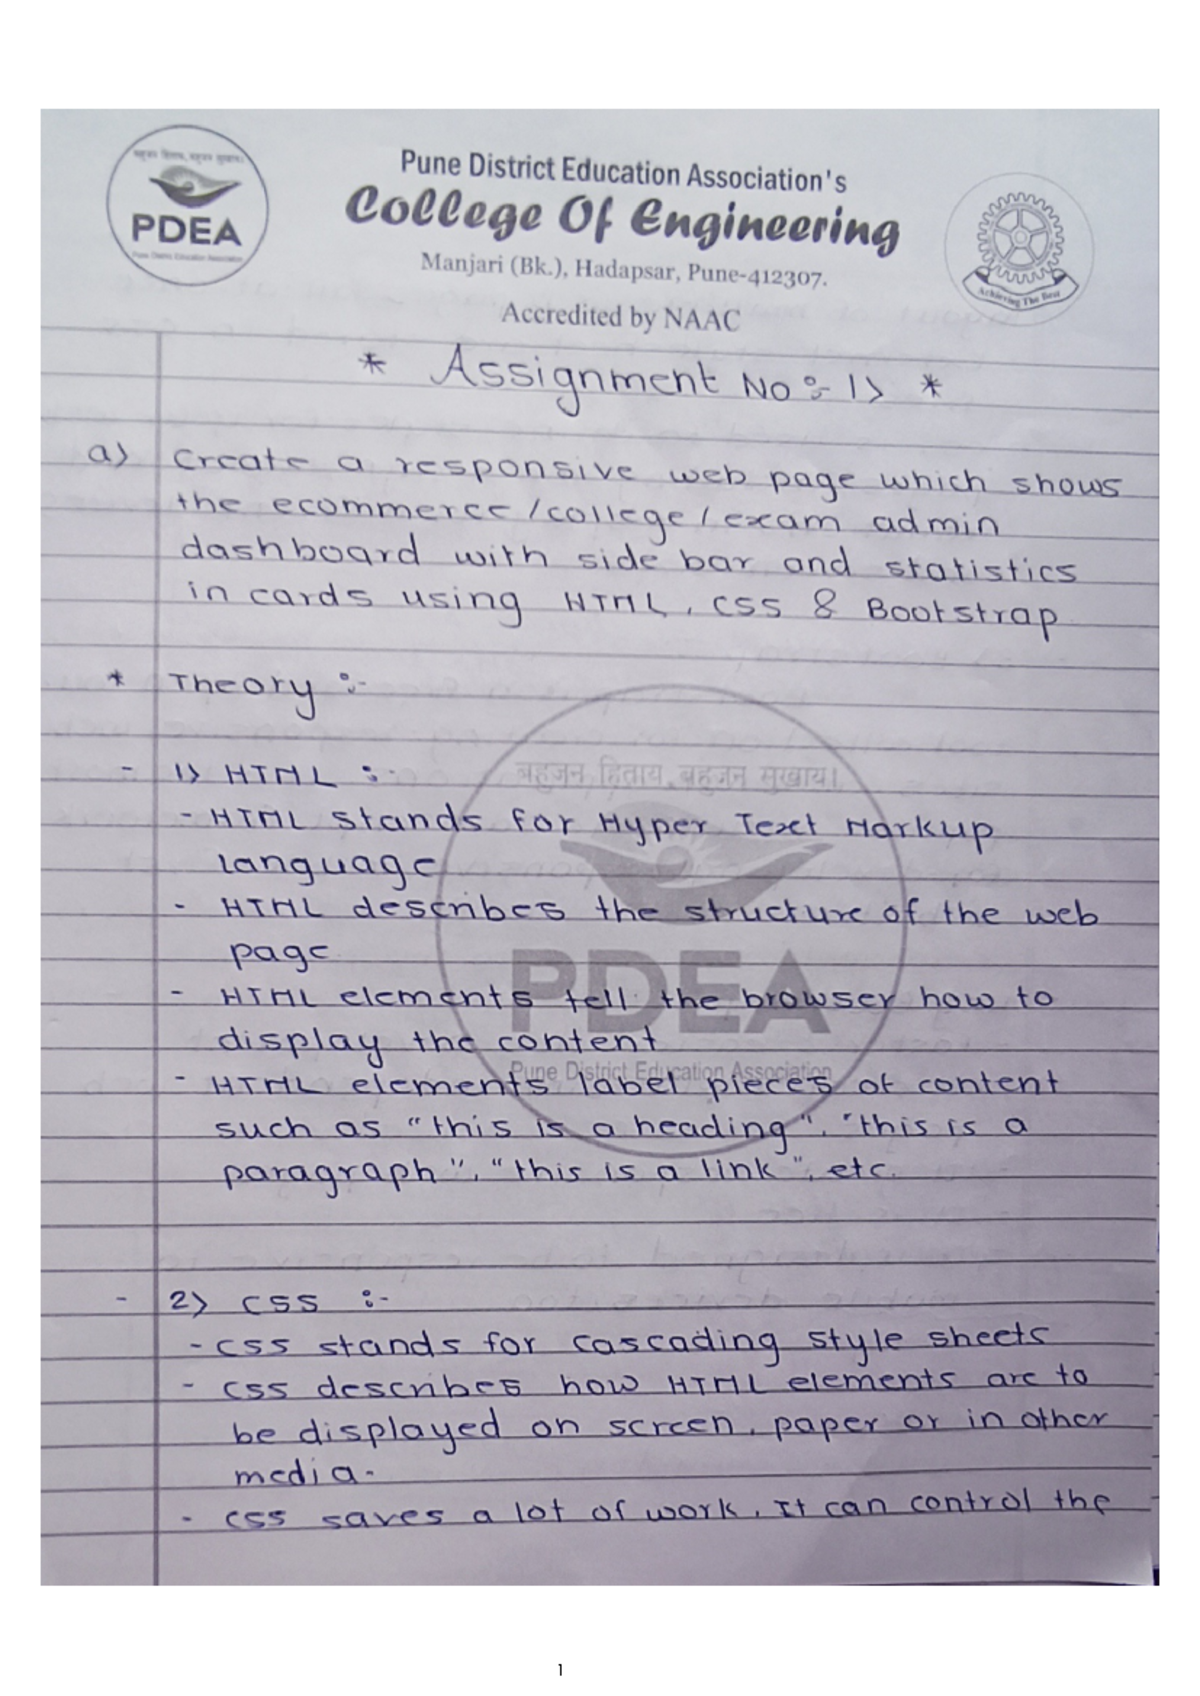 बहुजन हिताय, बहुजन सुखाय।
PDEA
Pune District Education Association
Pune District Education Association's
College Of Engineering
Manjari (Bk.), Hadapsar, Pune-412307.
Accredited by NAAC
Achieving The Best
* Assignment No :- 1) *
a) Create a responsive web page which shows
the ecommerce / college / exam admin
dashboard with side bar and statistics
in cards using HTML, CSS & Bootstrap
* Theory :-
- 1) HTML :-
- HTML stands for Hyper Text Markup
language
- HTML describes the structure of the web
page
- HTML elements tell the browser how to
display the content
- HTML elements label pieces of content
such as "this is a heading", "this is a
paragraph", "this is a link", etc.
बहुजन हिताय, बहुजन सुखाय।
PDEA
Pune District Education Association
- 2) CSS :-
- CSS stands for cascading style sheets
- CSS describes how HTML elements are to
be displayed on screen, paper or in other
media.
- CSS saves a lot of work. It can control the
1